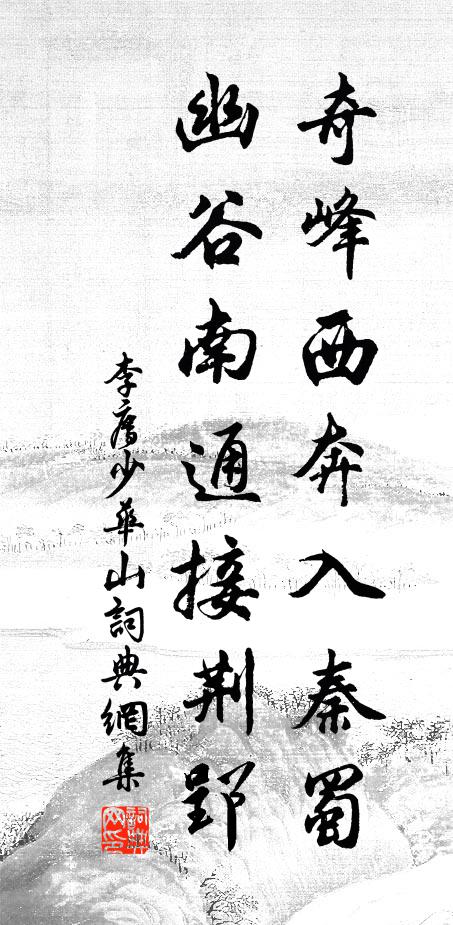 奇峰西奔入秦蜀
幽谷南通接荆郢
李廌少華山詞典網集